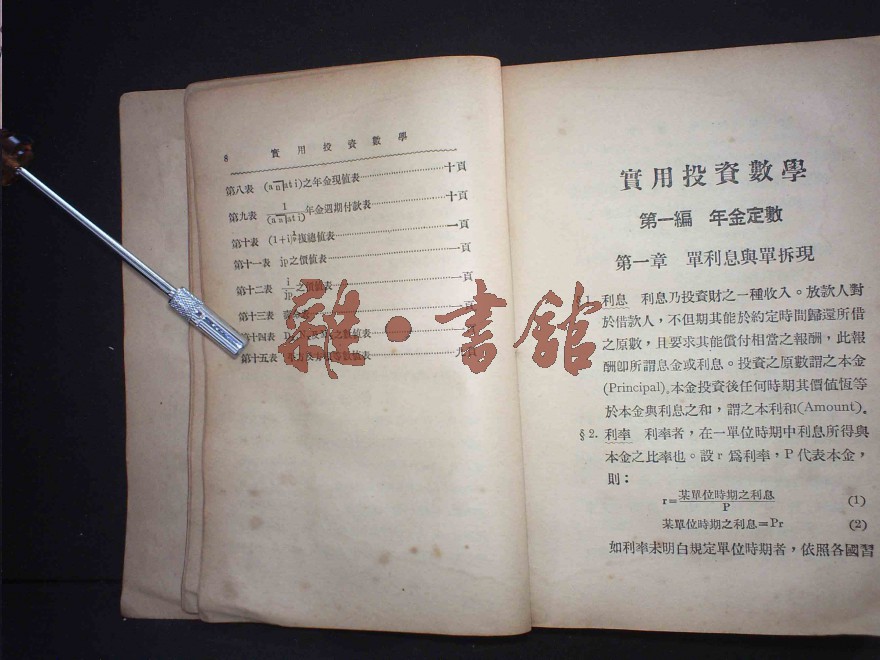 8 實用投資數學
第八表 (a n̅| at i)之年金現值表……十頁
第九表 1/(a n̅| at i) 年金週期付款表……十頁
第十表 (1+i) 複總值表……一頁
第十一表 jp之價值表……一頁
第十二表 i/jp 之價值表……一頁
第十三表
第十四 價值表
第十五表 價值表
雜•書館
實用投資數學
第一編 年金定數
第一章 單利息與單拆現
利息 利息乃投資財之一種收入。放款人對
於借款人,不但期其能於約定時間歸還所借
之原數,且要求其能償付相當之報酬,此報
酬卽所謂息金或利息。投資之原數謂之本金
(Principal)。本金投資後任何時期其價值恆等
於本金與利息之和,謂之本利和(Amount)。
§2. 利率 利率者,在一單位時期中利息所得與
本金之比率也。設 r 爲利率,P 代表本金,
則:
r=某單位時期之利息/P (1)
某單位時期之利息=Pr (2)
如利率未明白規定單位時期者,依照各國習